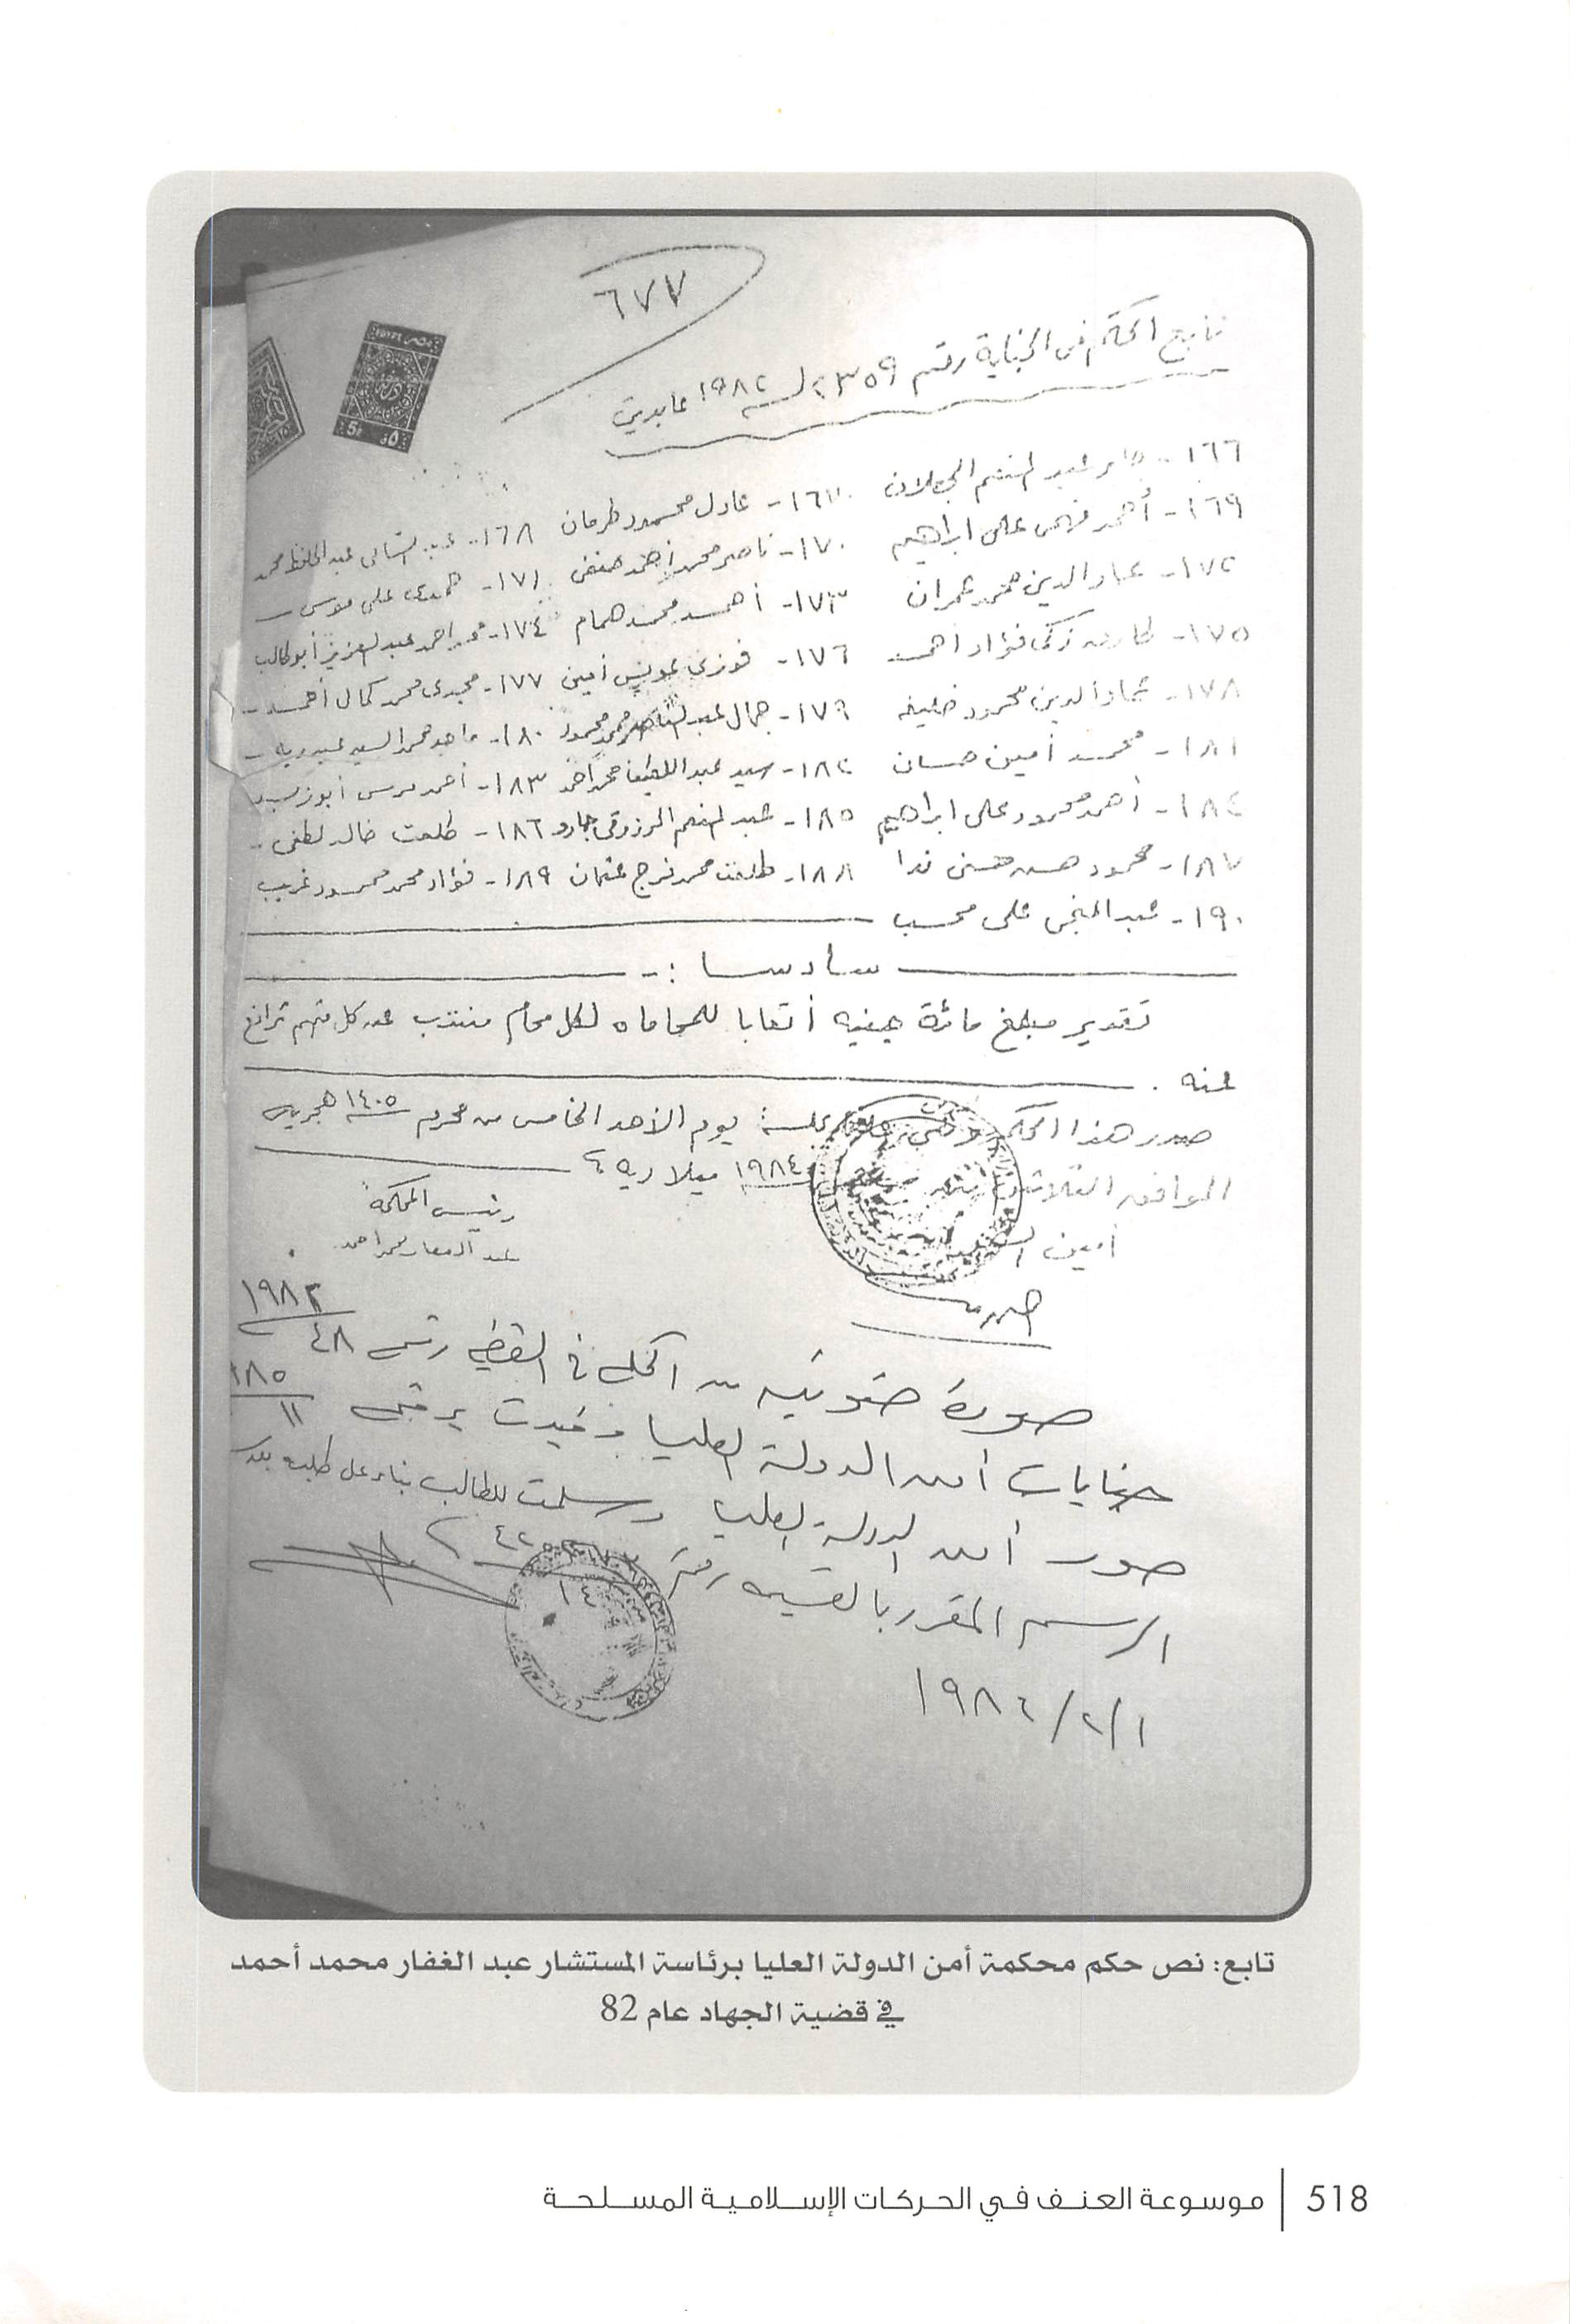 ٦٧٧
تابع الحكم فى الجناية رقم ٢٣٥٩ لسنة ١٩٨٢ عابدين
١٦٦- عبد المنعم ١٦٧- عادل محمود طرمان ١٦٨- عبد الحافظ محمد
١٦٩- أحمد فهمى على ابراهيم ١٧٠- ناصر محمد أحمد حنفى ١٧١- على موسى
١٧٢- عماد الدين محمد عمران ١٧٣- أحمد محمد همام ١٧٤- محمد احمد عبد العزيز أبو طالب
١٧٥- طارق زكى فؤاد أحمد ١٧٦- فوزى عويس أمين ١٧٧- مجدى محمد كمال أحمد
١٧٨- عماد الدين محمود خليفه ١٧٩- جمال محمود ١٨٠- ماجد محمد السيد عبد ربه
١٨١- محمد أمين حسان ١٨٢- سيد عبد اللطيف محمد أحمد ١٨٣- احمد مرسى أبو زيد
١٨٤- أحمد محمود على ابراهيم ١٨٥- عبد المنعم ١٨٦- طلعت خالد لطفى
١٨٧- محمود حسن حسنى ندا ١٨٨- طلعت محمد فرج عثمان ١٨٩- فؤاد محمد محمود غريب
١٩٠- عبد على محسب
سادسا :-
تقدير مبلغ مائة جنيه أتعابا للمحاماه لكل محام منتدب عن كل متهم ترافع
عنه .
صدر هذا الحكم بجلسة يوم الأحد الخامس من محرم ١٤٠٥ هجريه
الموافق الثلاثين ١٩٨٤ ميلاديه
أمين رئيس المحكمة
عبد الغفار محمد احمد
صورة ضوئيه من الحكم فى القضيه رقم ٤٨ / ١٩٨٢
جنايات أمن الدولة العليا وقيدت برقم ١١ / ٨٥
صور أمن الدولة العليا وسلمت للطالب بناء على طلبه بعد
الرسم المقرر بالقسيمه رقم
١/٢/١٩٨٦
تابع: نص حكم محكمة أمن الدولة العليا برئاسة المستشار عبد الغفار محمد أحمد
في قضية الجهاد عام 82
518 | موسوعة العنف في الحركات الإسلامية المسلحة